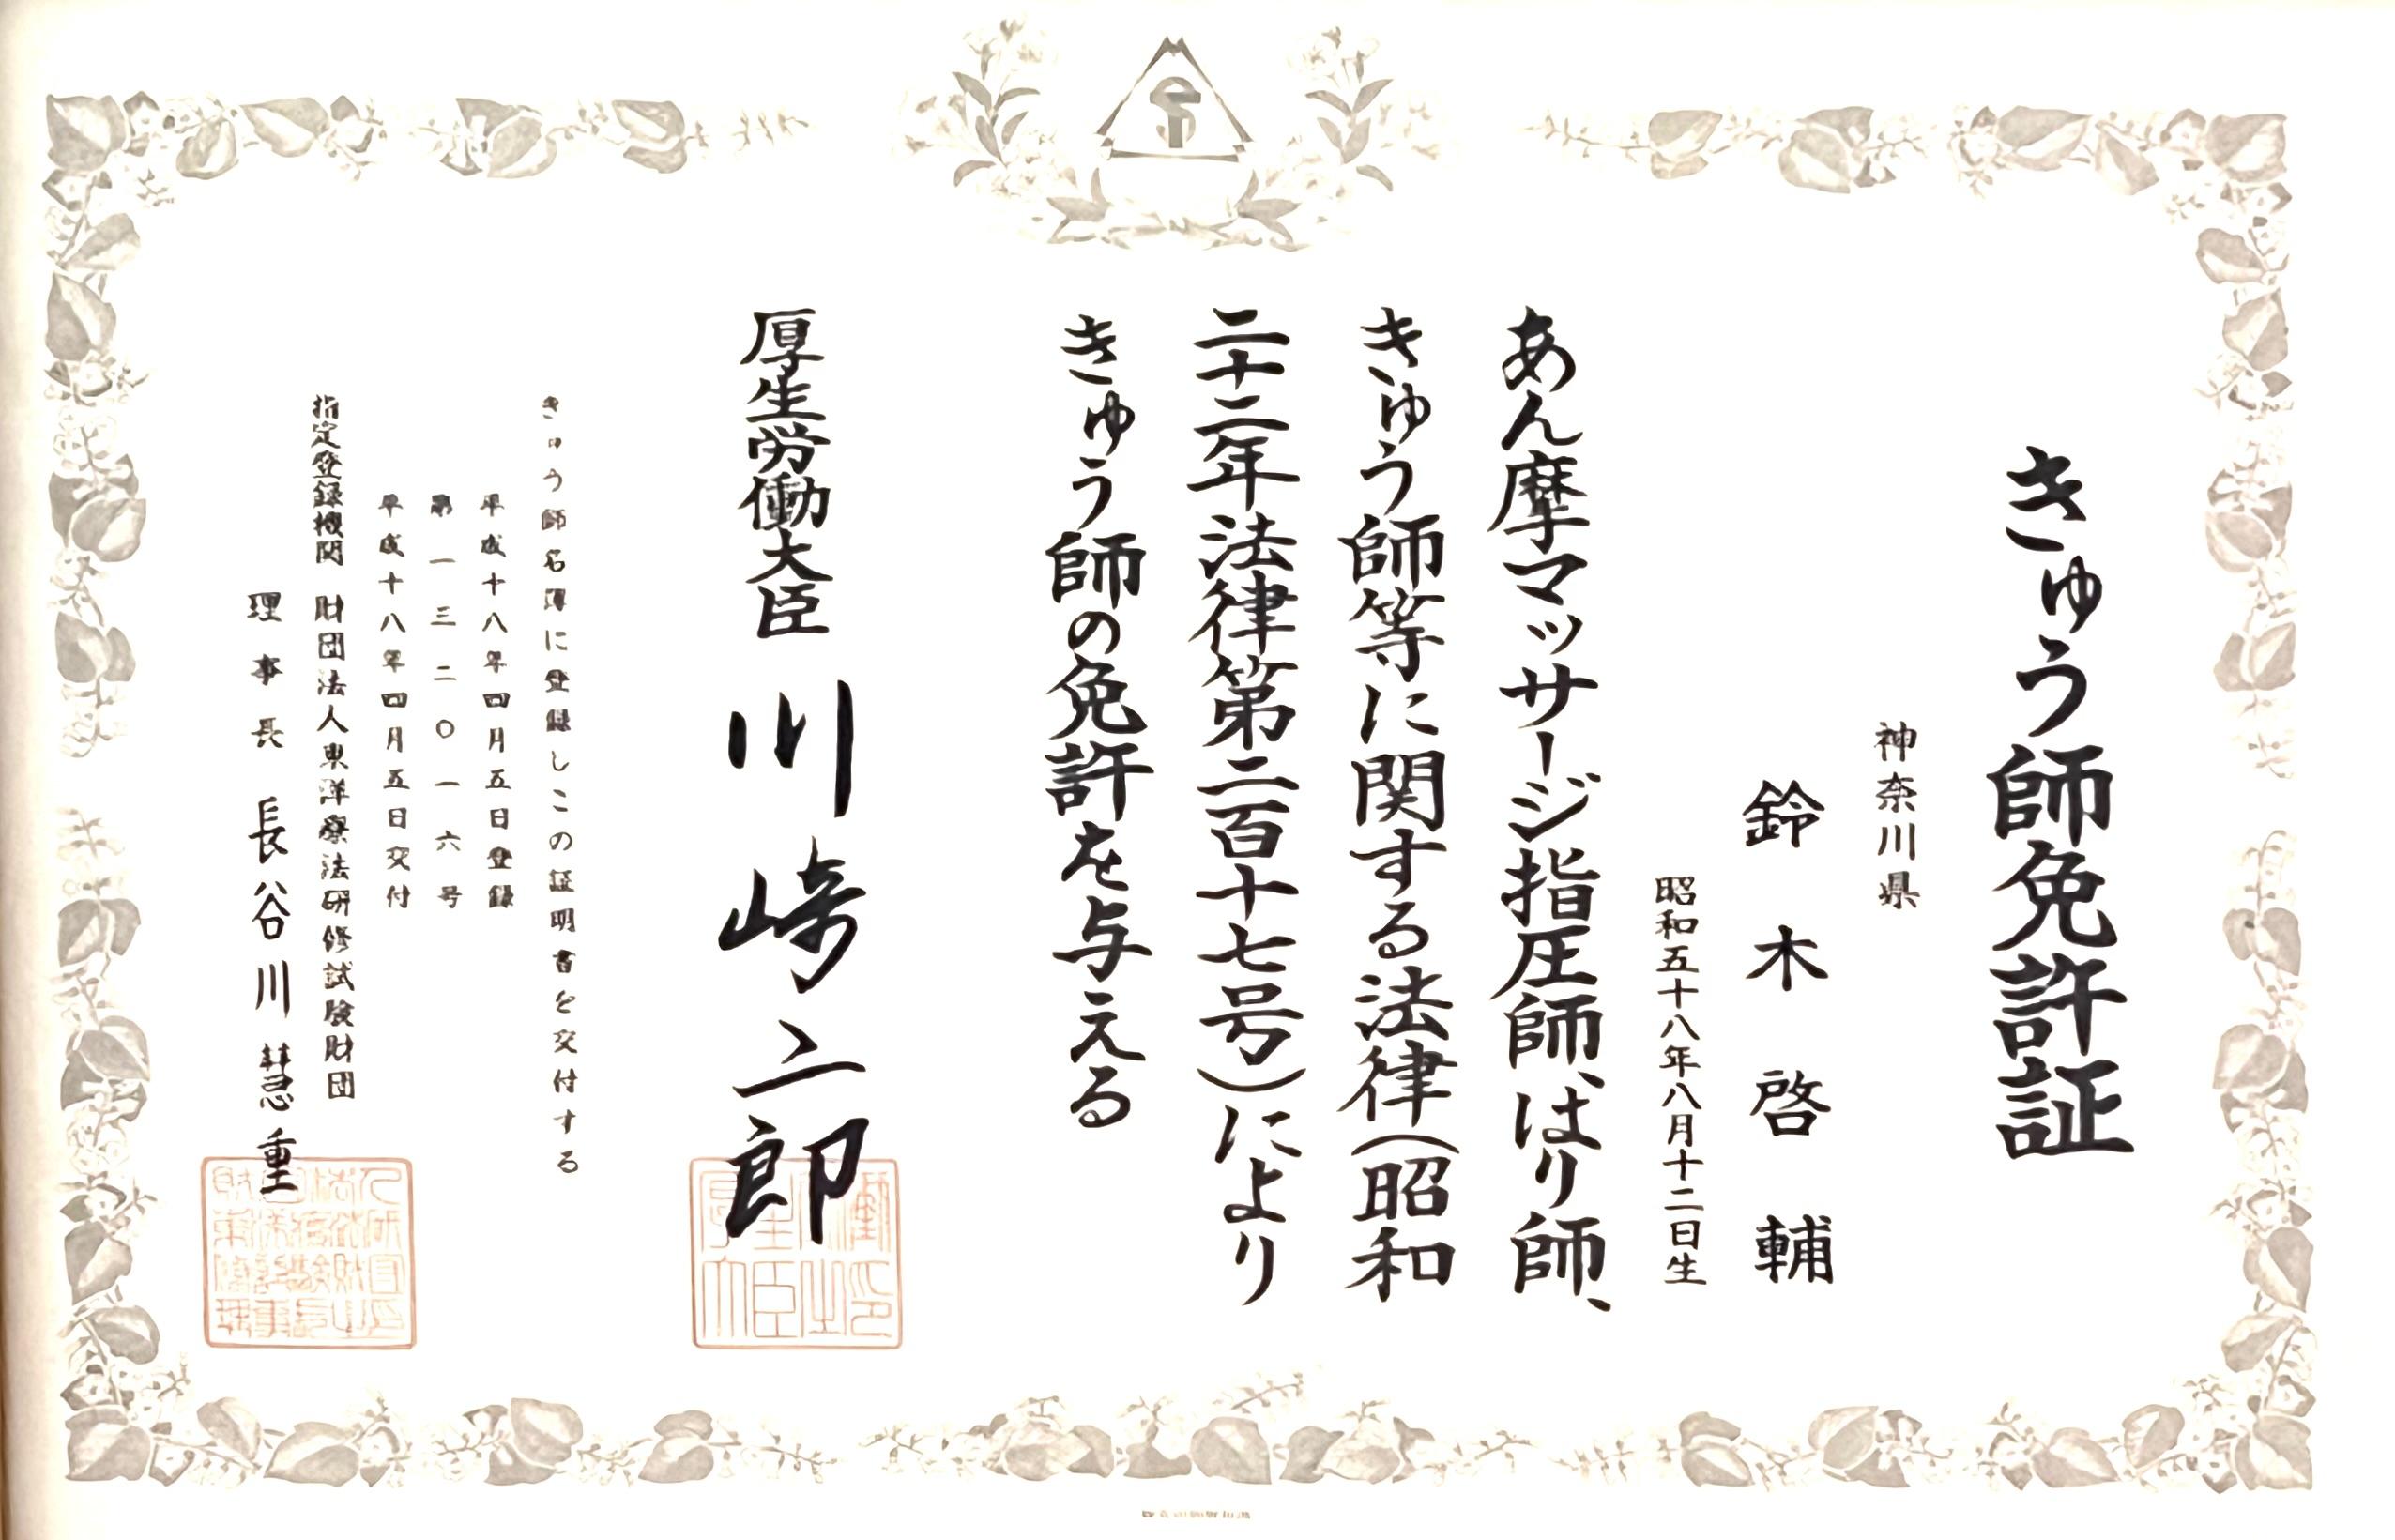 きゅう師免許証
神奈川県
鈴木啓輔
昭和五十八年八月十二日生
あん摩マッサージ指圧師、はり師、
きゅう師等に関する法律(昭和
二十二年法律第二百十七号)により
きゅう師の免許を与える
厚生労働大臣 川崎二郎
きゅう師名簿に登録しこの証明書を交付する
平成十八年四月五日登録
第一三二〇一六号
平成十八年四月五日交付
指定登録機関 財団法人東洋療法研修試験財団
理事長 長谷川慧重